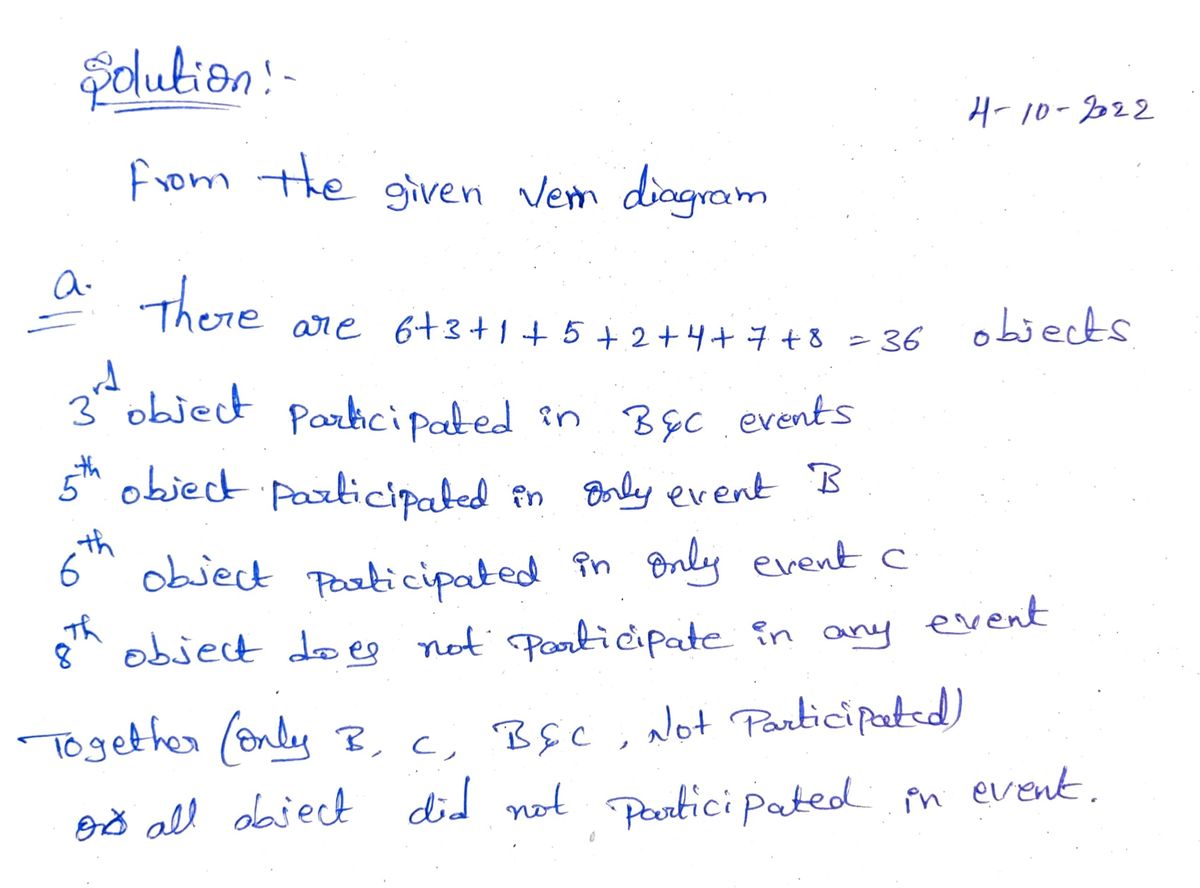 Solution:-
4-10-2022
From the given Venn diagram
a. There are 6+3+1+5+2+4+7+8 = 36 objects
3rd object Participated in B&C events
5th object Participated in only event B
6th object Participated in only event C
8th object does not Participate in any event
Together (only B, C, B&C, Not Participated)
all object did not Participated in event.